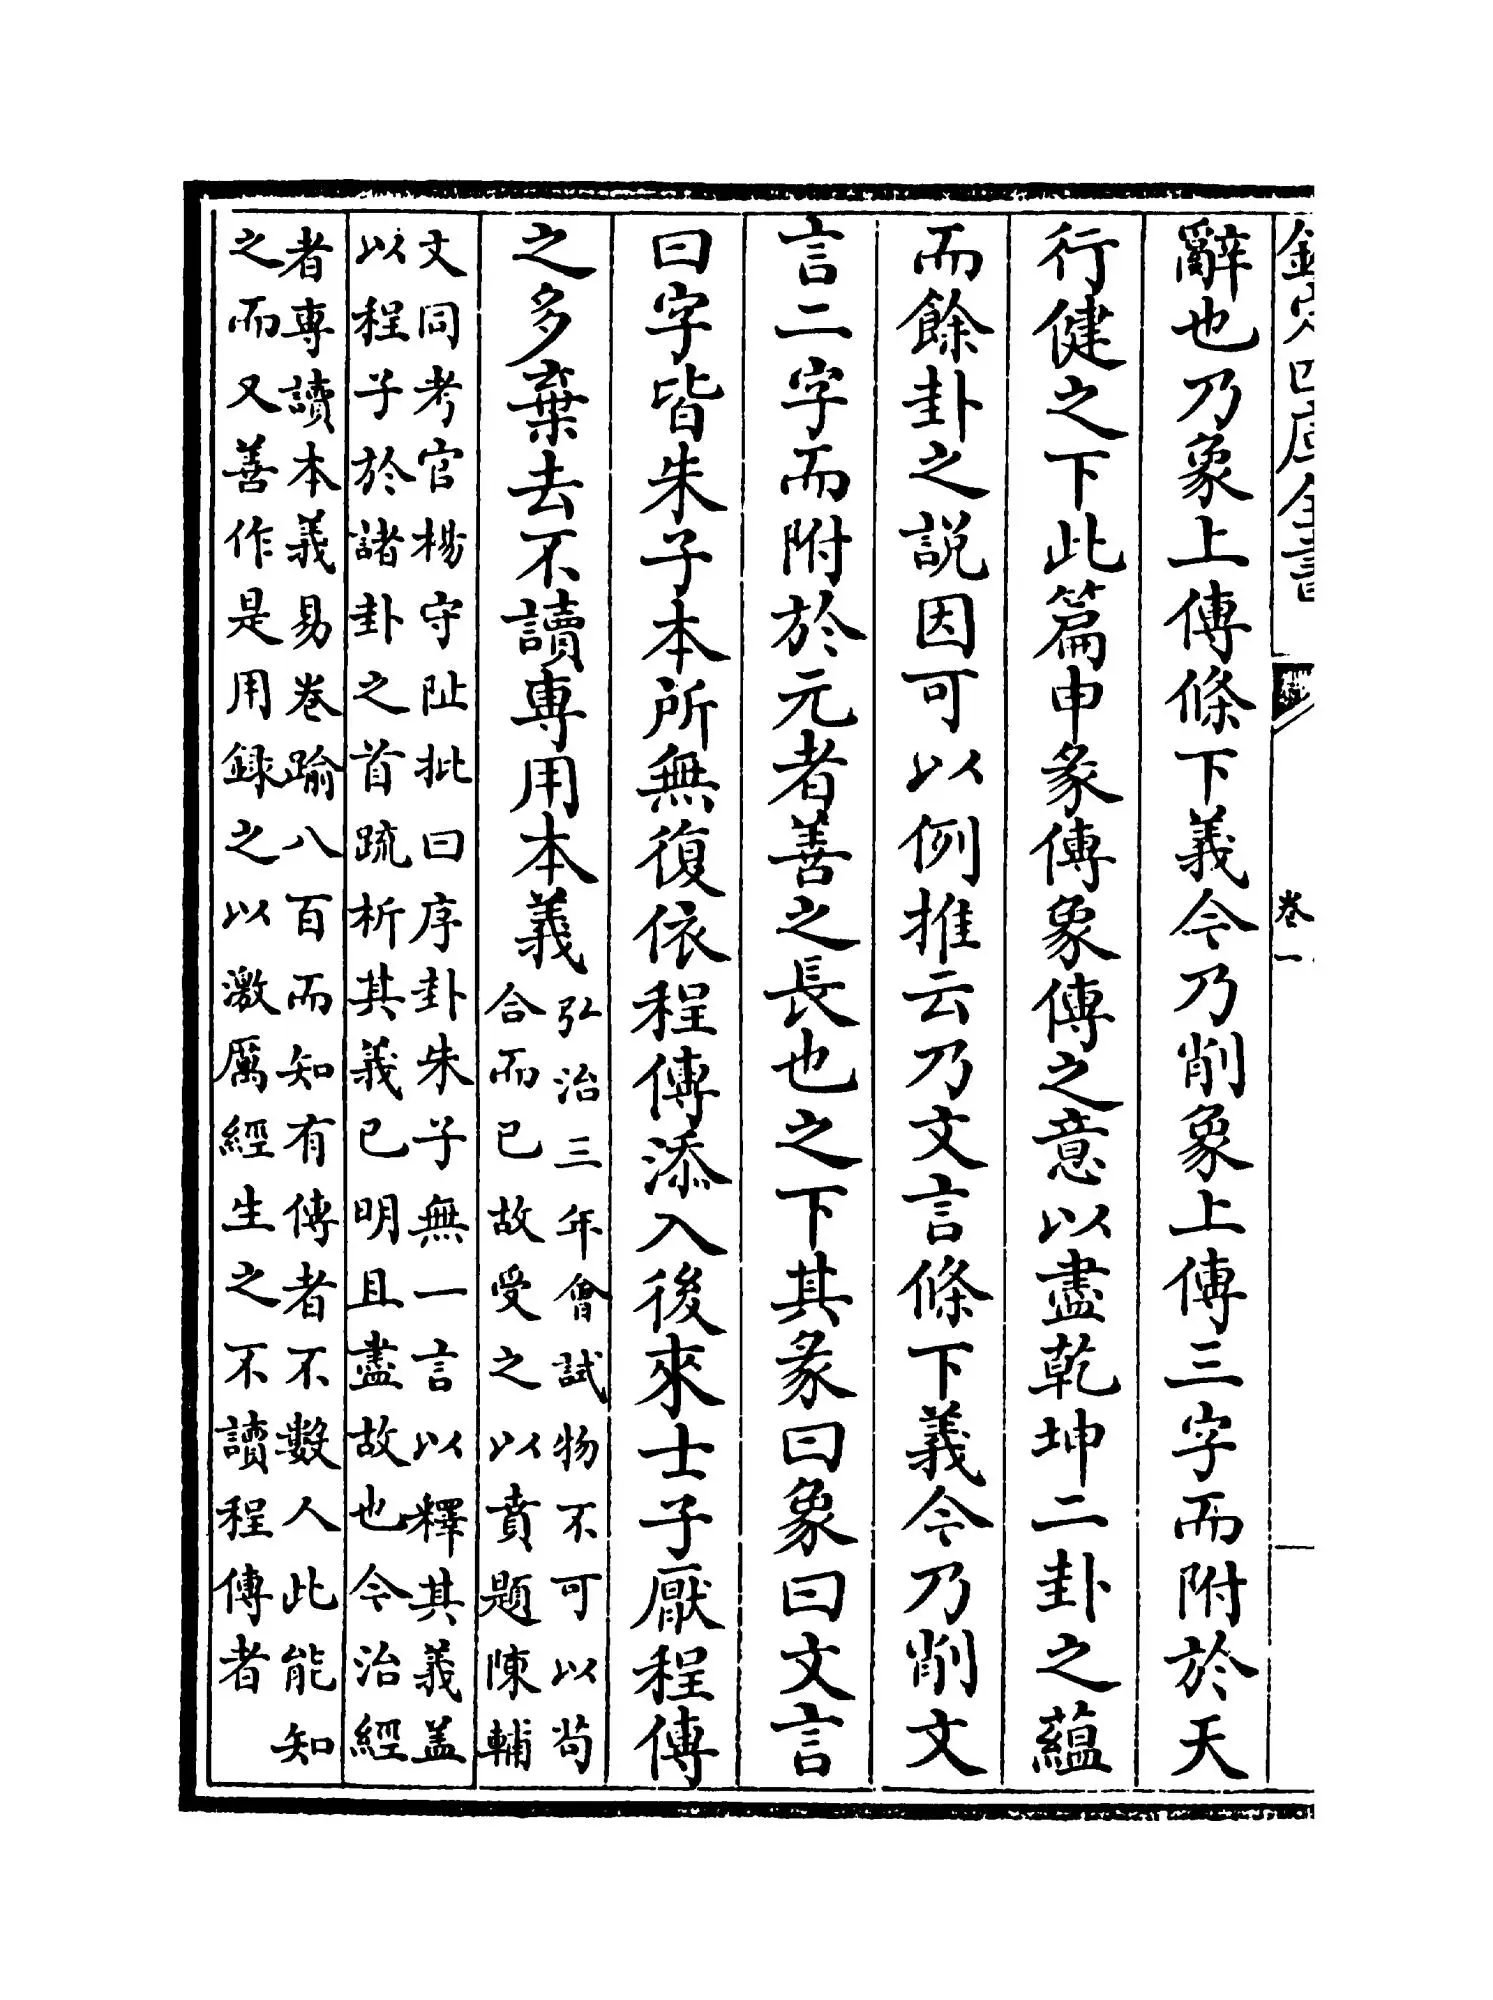 欽定四庫全書
卷一
辭也乃象上傳條下義今乃削象上傳三字而附於天
行健之下此篇申彖傳象傳之意以盡乾坤二卦之蘊
而餘卦之説因可以例推云乃文言條下義今乃削文
言二字而附於元者善之長也之下其彖曰象曰文言
曰字皆朱子本所無復依程傳添入後來士子厭程傳
之多棄去不讀專用本義
弘治三年會試物不可以茍
合而已故受之以賁題陳輔
文同考官楊守阯批曰序卦朱子無一言以釋其義盖
以程子於諸卦之首疏析其義已明且盡故也今治經
者專讀本義易巻踰八百而知有傳者不數人此能知
之而又善作是用録之以激厲經生之不讀程傳者